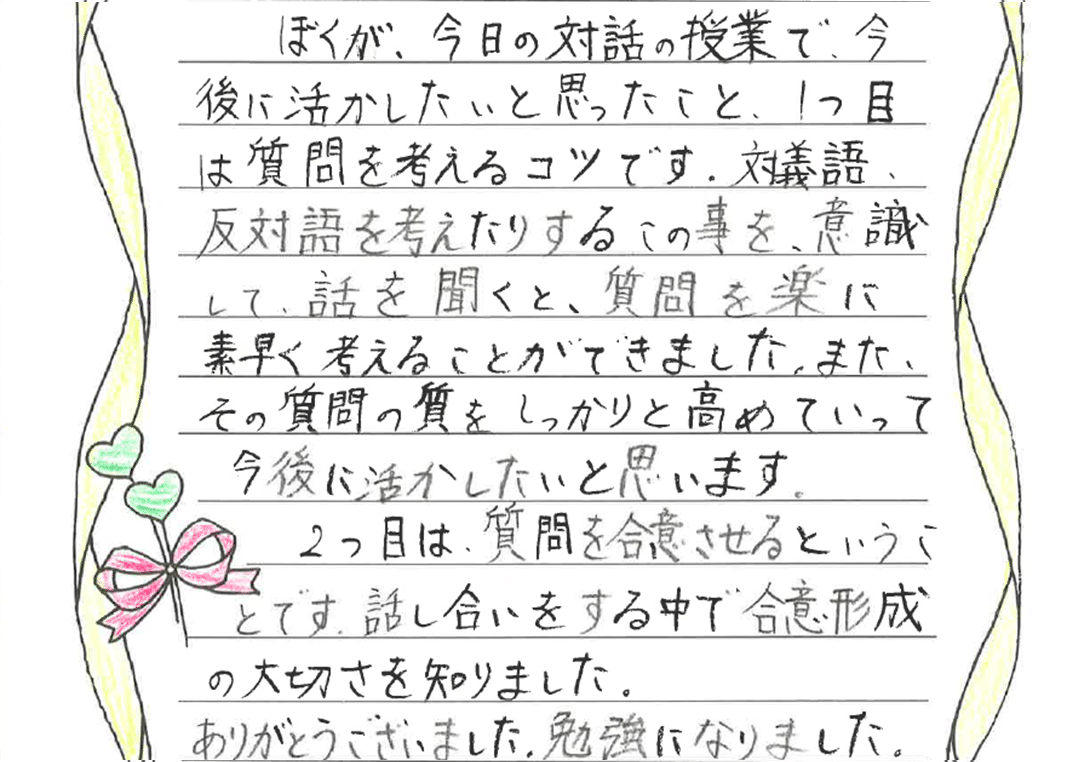 ぼくが、今日の対話の授業で、今
後に活かしたいと思ったこと、1つ目
は質問を考えるコツです。対義語、
反対語を考えたりするこの事を、意識
して、話を聞くと、質問を楽に
素早く考えることができました。また、
その質問の質をしっかりと高めていって
今後に活かしたいと思います。
2つ目は、質問を合意させるというこ
とです。話し合いをする中で合意形成
の大切さを知りました。
ありがとうございました。勉強になりました。